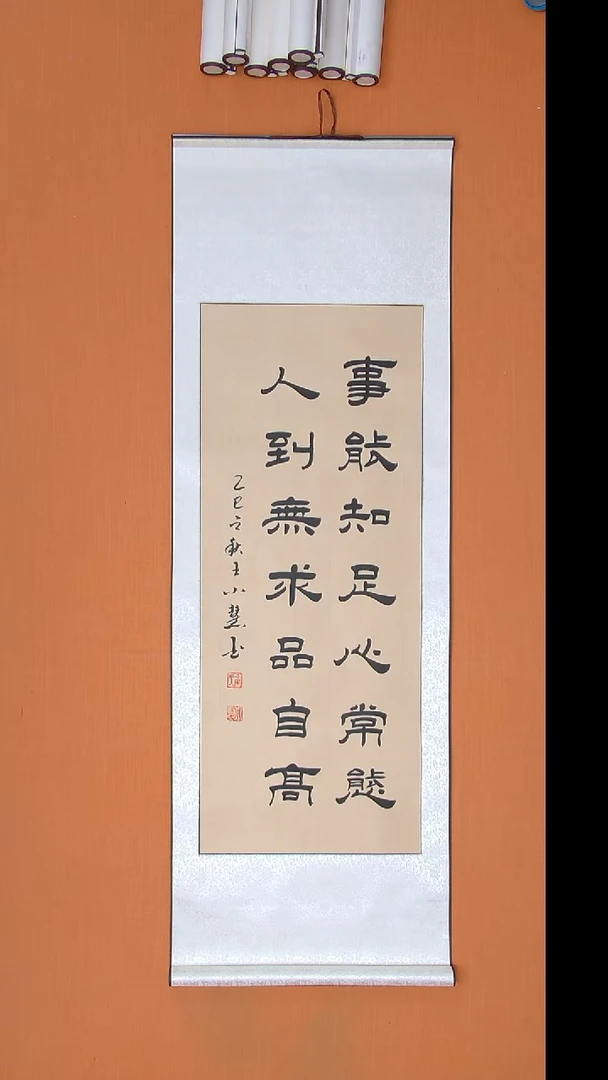 事能知足心常態
人到無求品自髙
乙巳立秋王小慧书